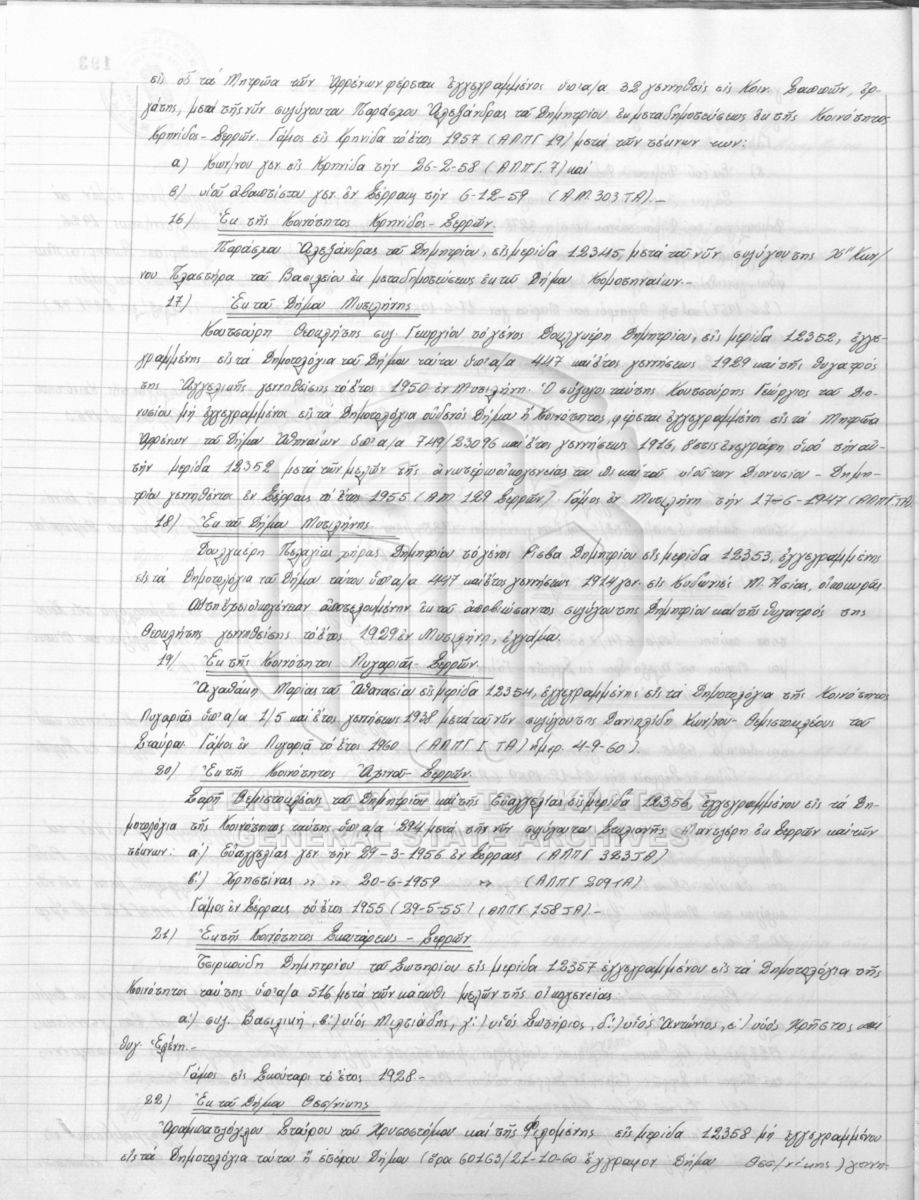 εἰς οὗ τά Μητρῶα τῶν Ἀρρένων φέρεται ἐγγεγραμμένος ὑπ' α/α 32 γεννηθείς εἰς Κοιν. Σαππῶν, ἐρ-
γάτης, μετά τῆς νῦν συζύγου του Παράσχου Ἀλεξάνδρας τοῦ Δημητρίου ἐκ μεταδημοτεύσεως ἐκ τῆς Κοινότητος
Κρηνίδος - Σερρῶν. Γάμος εἰς Κρηνίδα τό ἔτος 1957 (ΑΛΠΓ 19) μετά τῶν τέκνων των:
α) Κων/νου γεν. εἰς Κρηνίδα τήν 26-2-58 (ΑΛΠΓ. 7) καί
β) υἱοῦ ἀβαπτίστου γεν. ἐν Σέρραις τήν 6-12-59 (Α.Μ. 303 ΤΑ).-
16) Ἐκ τῆς Κοινότητος Κρηνίδος - Σερρῶν.
Παράσχου Ἀλεξάνδρας τοῦ Δημητρίου, εἰς μερίδα 12345, μετά τοῦ νῦν συζύγου της Χ" Κων/
νου Πλαστήρα τοῦ Βασιλείου ἐκ μεταδημοτεύσεως ἐκ τοῦ Δήμου Κομοτηναίων.-
17) Ἐκ τοῦ Δήμου Μυτιλήνης
Κουτσούρη Θεοκλήτης συζ. Γεωργίου τό γένος Δουλγκέρη Δημητρίου, εἰς μερίδα 12352, ἐγγε-
γραμμένης εἰς τά Δημοτολόγια τοῦ Δήμου τούτου ὑπ' α/α 447 καί ἔτος γεννήσεως 1929 καί τῆς θυγατρός
της Ἀγγελικῆς γεννηθείσης τό ἔτος 1950 ἐν Μυτιλήνῃ. Ὁ σύζυγος ταύτης Κουτσούρης Γεώργιος τοῦ Διο-
νυσίου μή ἐγγεγραμμένος εἰς τά Δημοτολόγια οὐδενός Δήμου ἤ Κοινότητος, φέρεται ἐγγεγραμμένος εἰς τά Μητρῶα
Ἀρρένων τοῦ Δήμου Ἀθηναίων ὑπ' α/α 749/23096 καί ἔτος γεννήσεως 1916, ὅστις ἐνεγράφη ὑπό τήν αὐ-
τήν μερίδα 12352 μετά τῶν μελῶν τῆς ἀνωτέρω οἰκογενείας του ὡς καί τοῦ υἱοῦ των Διονυσίου - Δημη-
τρίου γεννηθέντος ἐν Σέρραις τό ἔτος 1955 (Α.Μ. 129 Σερρῶν) Γάμος ἐν Μυτιλήνῃ τήν 17-6-1947 (ΑΛΠΓ.ΤΑ)
18) Ἐκ τοῦ Δήμου Μυτιλήνης
Δουλγκέρη Πελαγίας χήρας Δημητρίου τό γένος Ρίσβα Δημητρίου εἰς μερίδα 12353, ἐγγεγραμμένης
εἰς τά Δημοτολόγια τοῦ Δήμου τούτου ὑπ' α/α 447 καί ἔτος γεννήσεως 1914 γεν. εἰς Κυδωνιές Μ. Ἀσίας, οἰκοκυρᾶς.
ἀποτελουμένην ἐκ τοῦ ἀποβιώσαντος συζύγου της Δημητρίου καί τῆς θυγατρός της
Θεοκλήτης γεννηθείσης τό ἔτος 1929 ἐν Μυτιλήνῃ, ἐγγάμου.
19) Ἐκ τῆς Κοινότητος Λυγαριᾶς - Σερρῶν.
Ἀγαθάκη Μαρίας τοῦ Ἀθανασίου εἰς μερίδα 12354, ἐγγεγραμμένης εἰς τά Δημοτολόγια τῆς Κοινότητος
Λυγαριᾶς ὑπ' α/α 1/5 καί ἔτος γεννήσεως 1938 μετά τοῦ νῦν συζύγου της Δανιηλίδη Κων/νου - Θεμιστοκλέους τοῦ
Σταύρου. Γάμος ἐν Λυγαριᾷ τό ἔτος 1960 (ΑΛΠΓ 1 ΤΑ) ἡμερ. 4-9-60).
20) Ἐκ τῆς Κοινότητος Ἀχινοῦ - Σερρῶν.
Σαρῆ Θεμιστοκλέους τοῦ Δημητρίου καί τῆς Εὐαγγελίας εἰς μερίδα 12356, ἐγγεγραμμένου εἰς τά Δη-
μοτολόγια τῆς Κοινότητος ταύτης ὑπ' α/α 294 μετά τῆς νῦν συζύγου του Στυλιανῆς Μαντζέρη ἐκ Σερρῶν καί τῶν
τέκνων: α.) Εὐαγγελίας γεν. τήν 29-3-1956 ἐν Σέρραις (ΑΛΠΓ 323 ΤΑ)
β.) Χρηστίνας " " 20-6-1959 " (ΑΛΠΓ 209 ΤΑ)
Γάμος ἐν Σέρραις τό ἔτος 1955 (29-5-55) (ΑΛΠΓ 158 ΤΑ).-
21) Ἐκ τῆς Κοινότητος Σκουτάρεως - Σερρῶν
Τσιρκούδη Δημητρίου τοῦ Σωτηρίου εἰς μερίδα 12357 ἐγγεγραμμένου εἰς τά Δημοτολόγια τῆς
Κοινότητος ταύτης ὑπ' α/α 516 μετά τῶν κάτωθι μελῶν τῆς οἰκογενείας
α.) συζ. Βασιλική, β.) υἱός Μιλτιάδης, γ.) υἱός Σωτήριος, δ.) υἱός Ἀντώνιος, ε.) υἱός Χρῆστος καί
θυγ. Ἑλένη.-
Γάμος εἰς Σκούταρι τό ἔτος 1928.-
22) Ἐκ τοῦ Δήμου Θεσ/νίκης
Ἀραμπατζόγλου Σταύρου τοῦ Χρυσοστόμου καί τῆς Φιλομένης εἰς μερίδα 12358 μή ἐγγεγραμμένου
εἰς τά Δημοτολόγια τούτου ἤ ἑτέρου Δήμου (ὅρα 60163/21-10-60 ἔγγραφον Δήμου Θεσ/νίκης) γενη-
ΓΕΝΙΚΑ ΑΡΧΕΙΑ ΤΟΥ ΚΡΑΤΟΥΣ
GENERAL STATE ARCHIVES